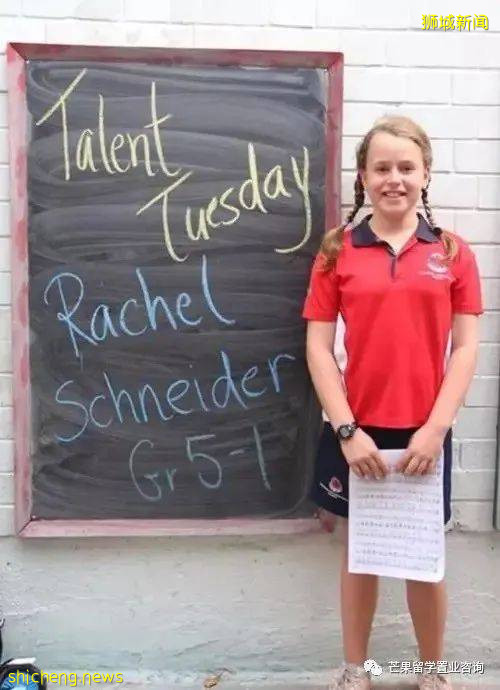 狮城新闻
Talent
Tuesday
Rachel
Schneider
Gr 5-1
shicheng.news
芒果留学置业咨询